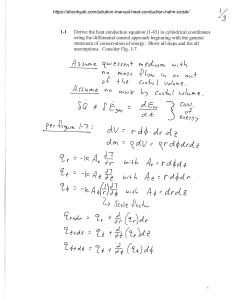 https://ebookyab.com/solution-manual-heat-conduction-hahn-ozisik/
1/3
1-1 Derive the heat conduction equation (1-43) in cylindrical coordinates
using the differential control approach beginning with the general
statement of conservation of energy. Show all steps and list all
assumptions. Consider Fig. 1-7.
Assume quiescent medium with
no mass flow in or out
of the control volume.
Assume no work by control volume.
δQ + δE_gen = dE_cv/dt } Cons. of energy
per figure 1-7: dV = r dφ dr dz
dm = ρdV = ρ r dφ dr dz
q_r = -k A_r ∂T/∂r with A_r = r dφ dz
q_z = -k A_z ∂T/∂z with A_z = r dφ dr
q_φ = -k A_φ (1/r) ∂T/∂φ with A_φ = dr dz
↳ Scale factor
q_r+dr = q_r + ∂/∂r (q_r) dr
q_z+dz = q_z + ∂/∂z (q_z) dz
q_φ+dφ = q_φ + ∂/∂φ (q_φ) dφ